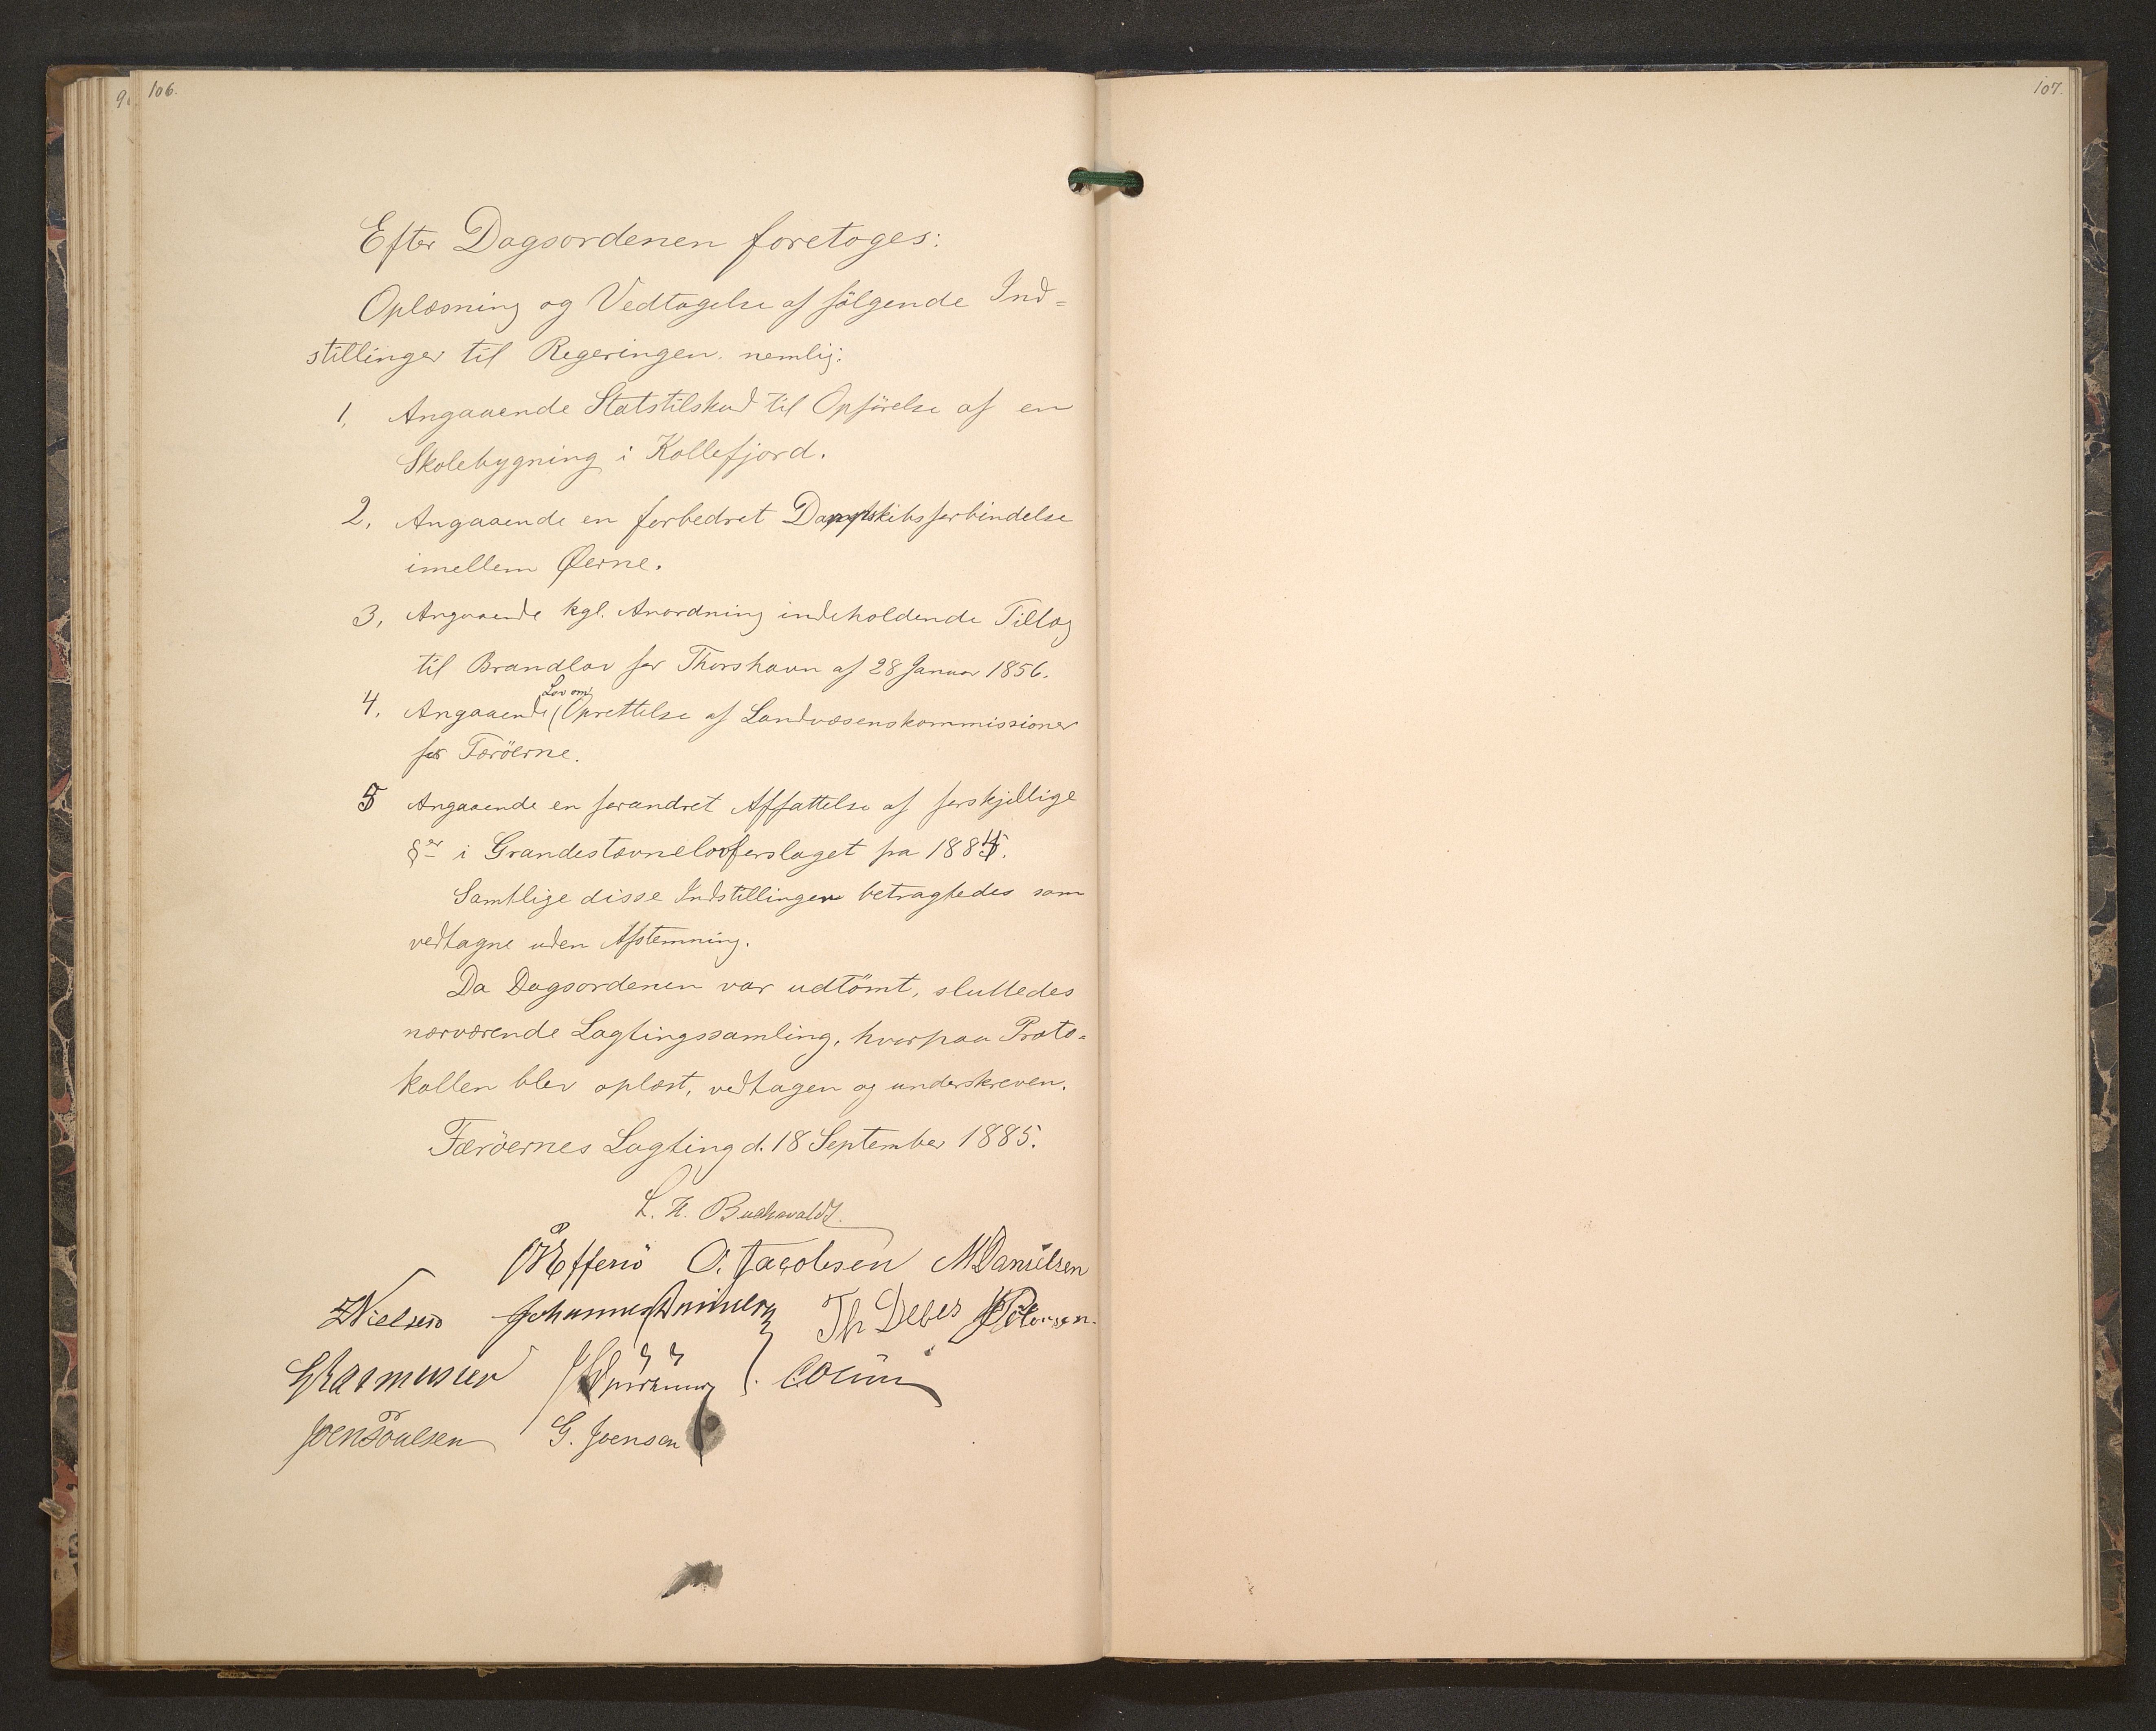 106.
107.
Efter Dagsordenen foretoges:
Oplæsning og Vedtagelse af følgende Ind=
stillinger til Regeringen nemlig:
1, Angaaende Statstilskud til Opførelse af en
Skolebygning i Kollefjord.
2, Angaaende en forbedret Dampskibsforbindelse
imellem Øerne.
3, Angaaende kgl. Anordning indeholdende Tillæg
til Brandlov for Thorshavn af 28 Januar 1856.
4, Angaaende Lov om Oprettelse af Landvæsenskommissioner
for Færöerne.
5 Angaaende en forandret Affattelse af forskjellige
§er i Grandestævnelovforslaget fra 1884.
Samtlige disse Indstillinger betragtedes som
vedtagne uden Afstemning.
Da Dagsordenen var udtömt, sluttedes
nærværende Lagtingssamling, hvorpaa Proto=
kollen blev oplæst, vedtagen og underskreven.
Færöernes Lagting d. 18 September 1885.
L. H. Buchwaldt.
Effersö O. Jacobsen M Danielsen
Z Nielsen Johannes Th Debes Petersen.
Rasmussen
Joen Poulsen G. Joensen